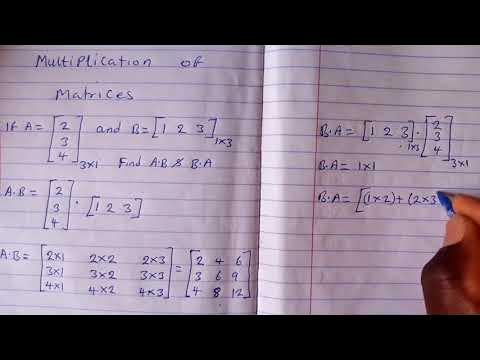 Multiplication of
Matrices
If A = [2 3 4] 3x1 and B = [1 2 3] 1x3
Find A.B & B.A
A.B = [2 3 4] . [1 2 3]
A.B = [2x1 2x2 2x3
3x1 3x2 3x3
4x1 4x2 4x3] = [2 4 6
3 6 9
4 8 12]
B.A = [1 2 3] 1x3 . [2 3 4] 3x1
B.A = 1x1
B.A = [(1x2)+(2x3